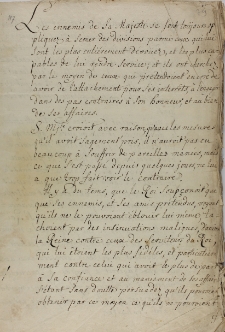 Les ennemis de Sa Majesté se sont toujours ap
pliquez à semer des divisions parmi ceux qui lui
sont les plus entierement devouez, et les plus ca
pables de lui rendre service; et ils ont tenté
par le moyen de ceux qui pretendoient
avoir de l'attachement pour ses interêts à
dans des pas contraires à son honneur et au bien
de ses affaires.
S. M.té croioit avec raison, que les mesures
qu'il avoit sagement pris, il n'auroit pas eu
beaucoup à souffrir de pareilles mais
ce qui s'est passé depuis quelques jours, ne lui
a que trop fait voir le contraire.
Il y a du tems, que le Roi soupçonnoit que
que ses ennemis, et ses amis pretendus, voyant
qu'ils ne le pouvoient eblouir lui même,
choient par des insinuations malignes, de
la Reine contre ceux des serviteurs du Roi,
qui lui étoient les plus fideles, et particuliere
ment contre celui qui avoit le plus de part
à Sa confiance et au maniement
S'étant sans doute persuadez qu'ils
obtenir par ce moyen ce qu'ils ne pourroient